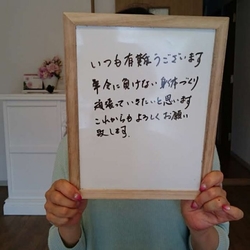 いつも有難うございます
年令に負けない身体づくり
頑張っていきたいと思います
これからもよろしくお願い
致します。